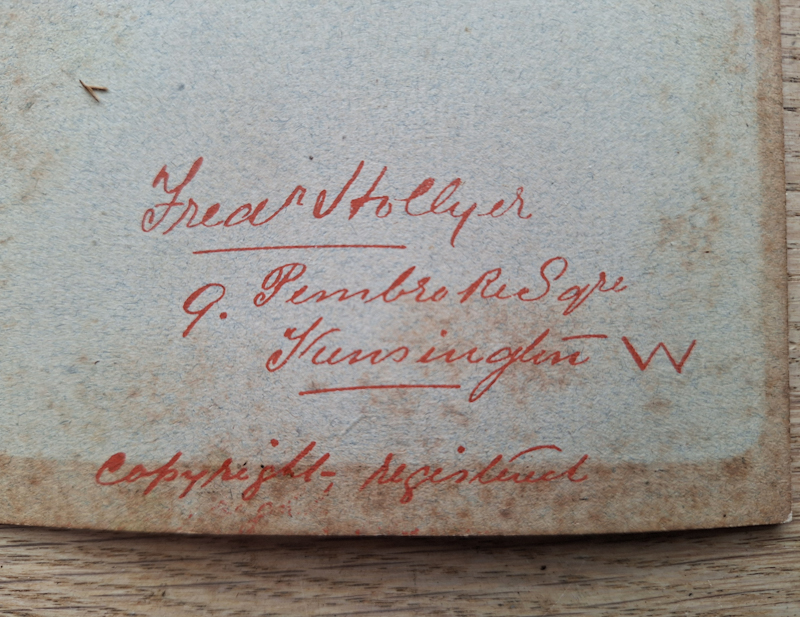 Fredk Hollyer
9. Pembroke Sqre
Kensington W
Copyright, registered